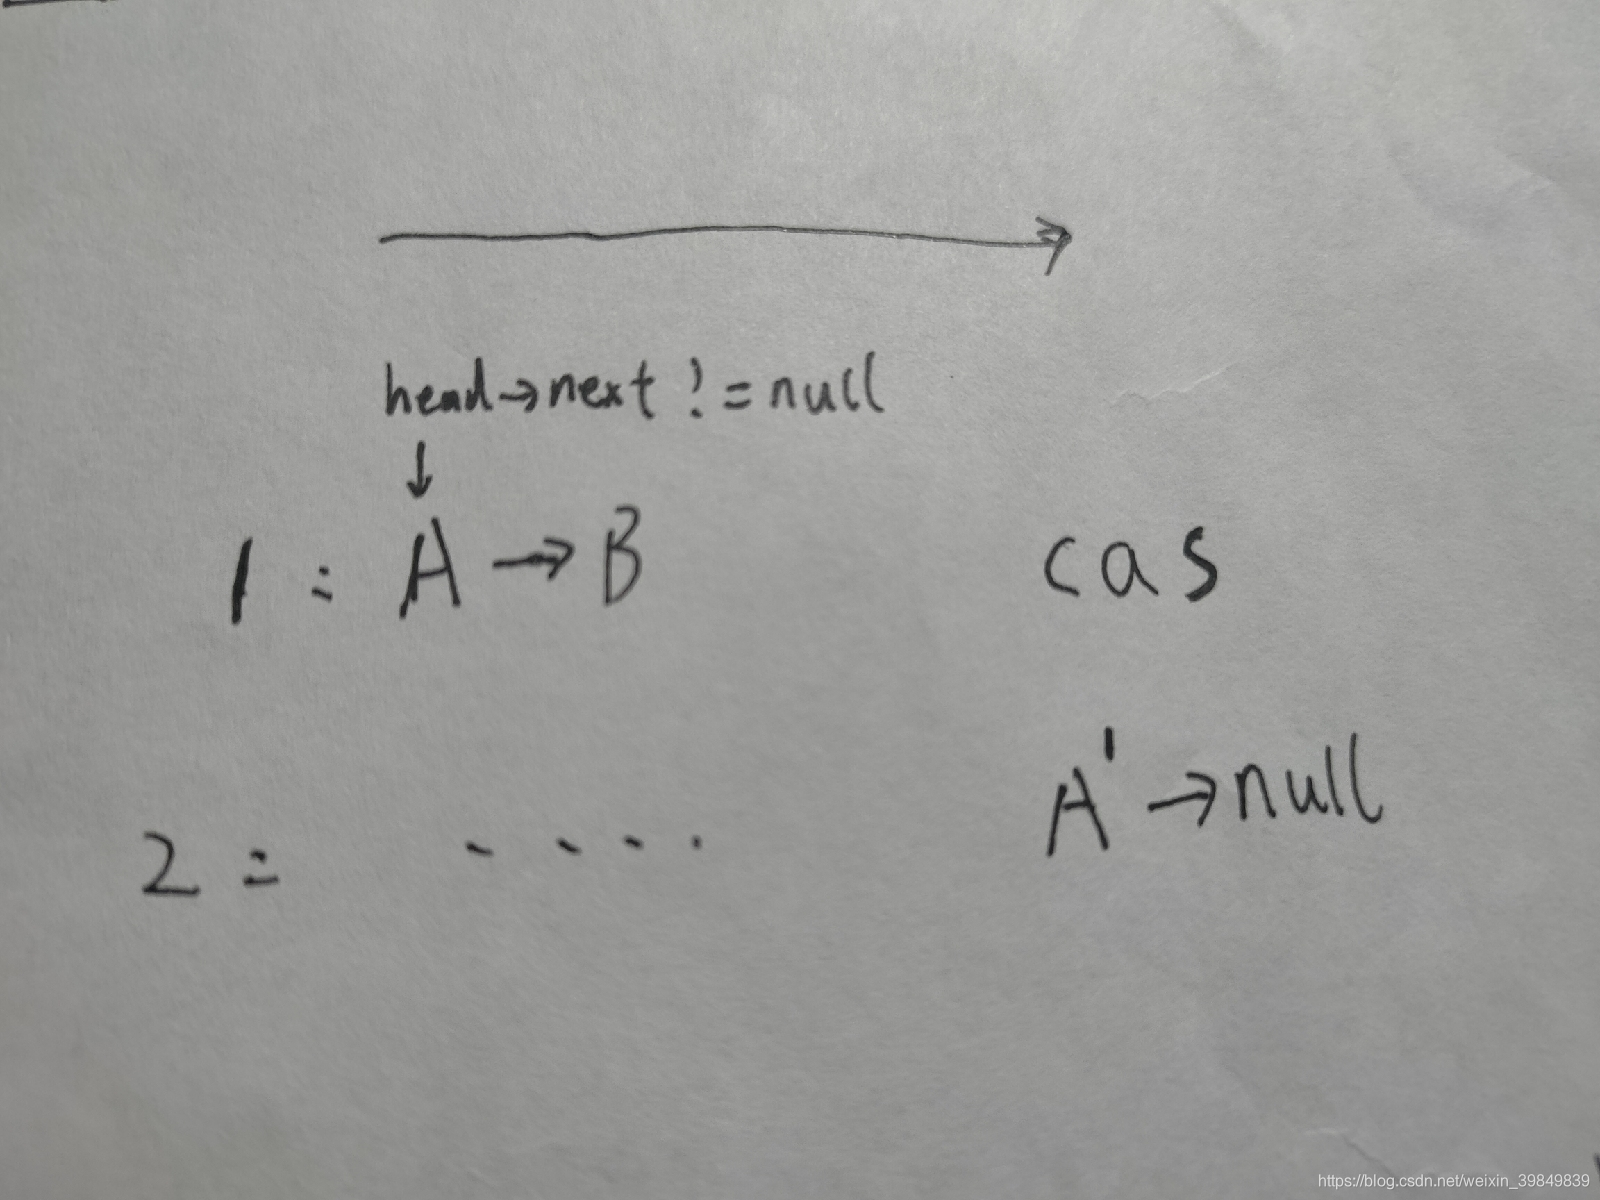 head→next != null
↓
1 : A → B cas
A' → null
2 = · · · ·
https://blog.csdn.net/weixin_39849839